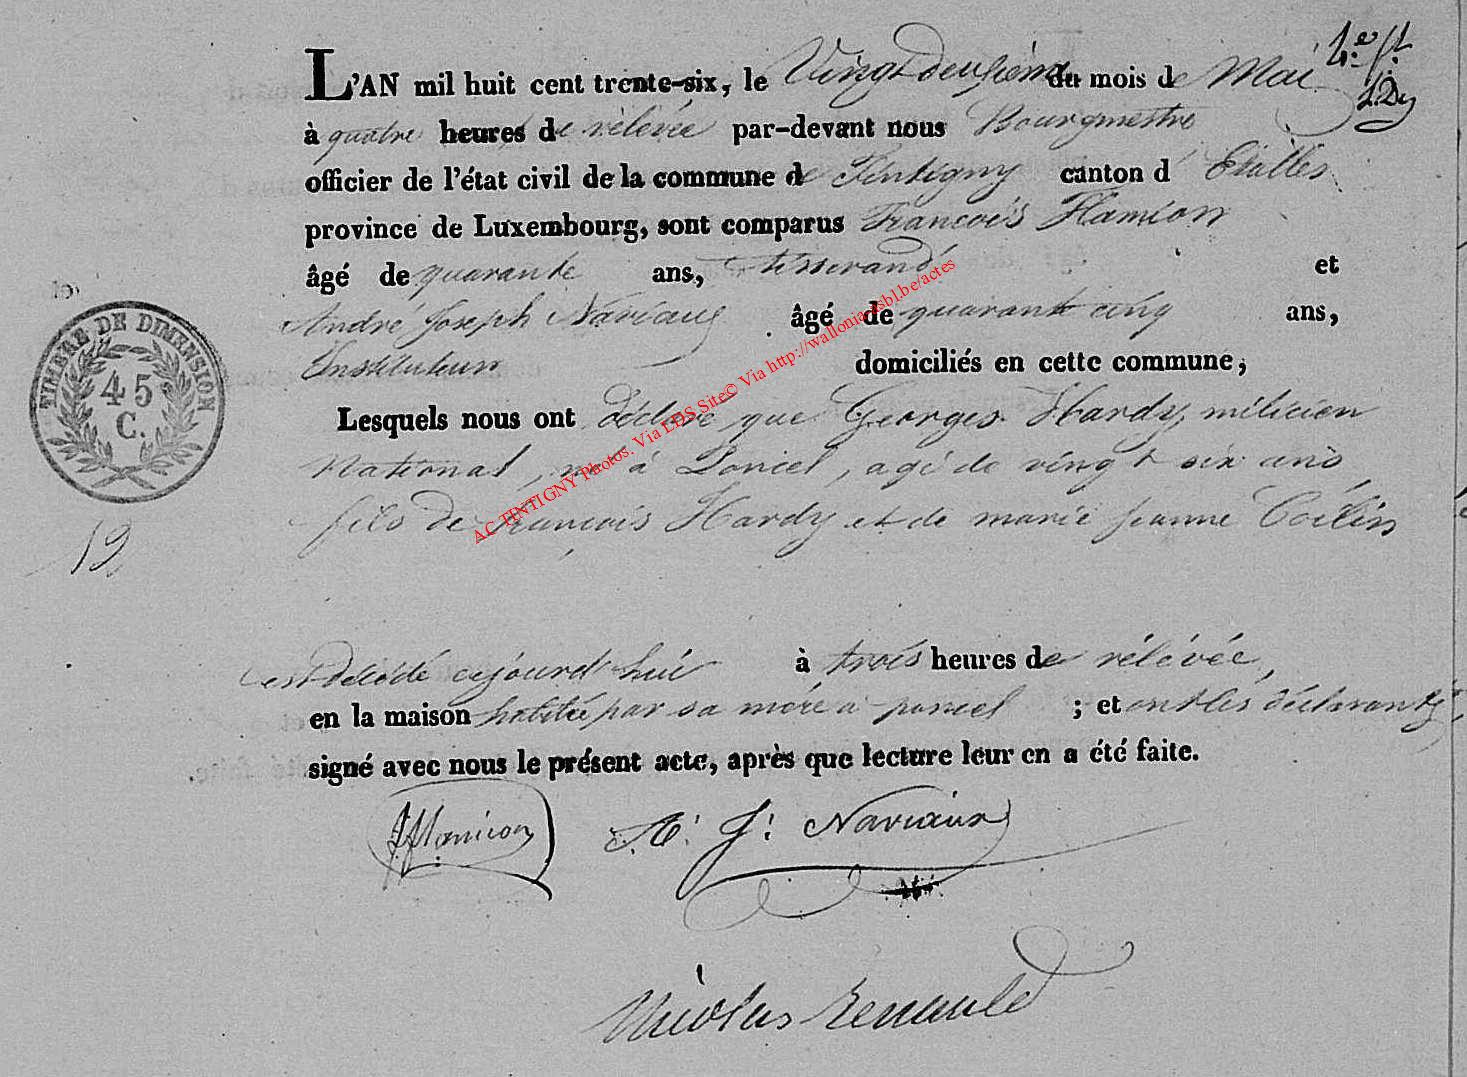 L'AN mil huit cent trente-six, le Vingt deuxième du mois de Mai
à quatre heures de rélevée par-devant nous Bourgmestre
officier de l'état civil de la commune de Tintigny canton d' Etalles
province de Luxembourg, sont comparus Francois Flamion
âgé de quarante ans, tisserand et
André Joseph Nariaux âgé de quarante cinq ans,
Instituteur domiciliés en cette commune;
Lesquels nous ont déclaré que Georges Hardy, milicien
National, né à Poncel, agé de vingt six ans
fils de Francois Hardy et de marie jeanne Collin
TIMBRE DE DIMENSION
45
C.
19
est décédé aujourd'hui à trois heures de rélévée,
en la maison habitée par sa mére a poncel ; et ont les déclarants,
signé avec nous le présent acte, après que lecture leur en a été faite.
fflamion A. J. Nariaux
Nicolas Renauld
AC TINTIGNY Photos. Via LDS Site© Via http://wallonia-asbl.be/actes